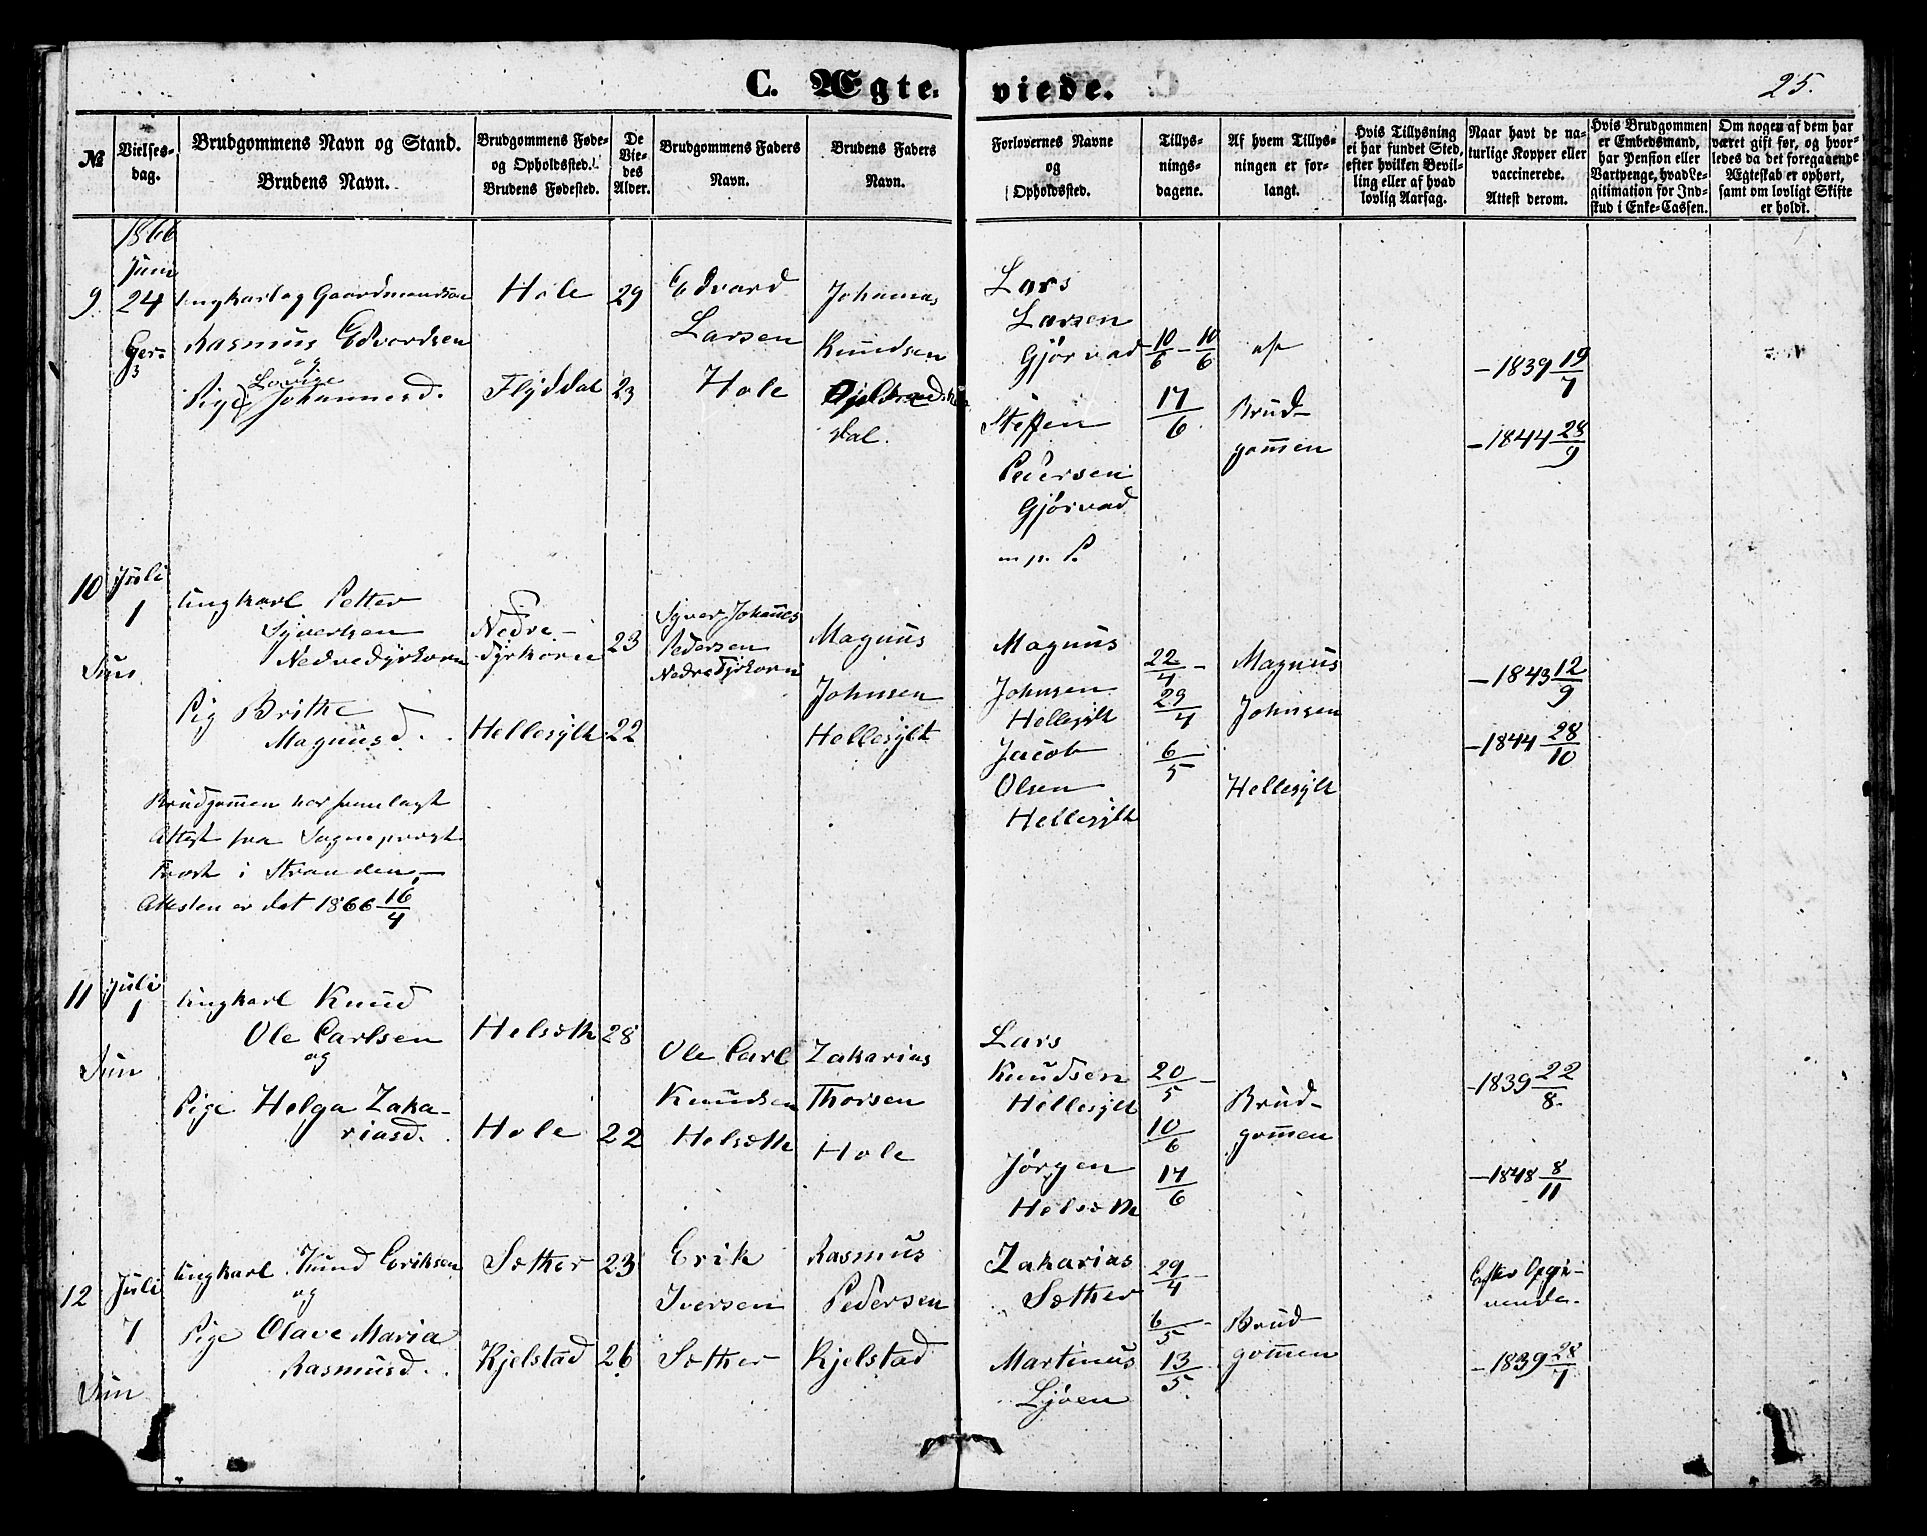 C. Ægte
viede.
25.
№
Vielses-
dag.
Brudgommens Navn og Stand.
Brudens Navn.
Brudgommens Føde-
og Opholdssted.
Brudens Fødested.
De
Vie-
des
Alder.
Brudgommens Faders
Navn.
Brudens Faders
Navn.
Forlovernes Navne
og
Opholdssted.
Tillys-
nings-
dagene.
Af hvem Tillys-
ningen er for-
langt.
Hvis Tillysning
ei har fundet Sted,
efter hvilken Bevil-
ling eller af hvad
lovlig Aarsag.
Naar havt de na-
turlige Kopper eller
vaccinerede.
Attest derom.
Hvis Brudgommen
er Embedsmand,
har Pension eller
Vartpenge, hvad Le-
gitimation for Ind-
skud i Enke-Cassen.
Om nogen af dem har
været gift før, og hvor-
ledes da det foregaaende
Ægteskab er ophørt,
samt om lovligt Skifte
er holdt.
1866
Juni
9
24
Ungkarl og Gaardmandsøn
Rasmus Edvardsen
og
Pige Lovise
Johannesd.
Hole
Flyddal
29
23
Edvard
Larsen
Hole
Johannes
Knudsen
dal.
Lars
Larsen
Gjørvad
Steffen
Pedersen
Gjørvad
m. p. P.
10/6 - 10/6
17/6
af
Brud-
gommen
- 1839 19/7
- 1844 28/9
10
Juli
1
Sun
Ungkarl Petter
Syversen
Nedredyrkorn
Pig Brithe
Magnusd.
Nedre-
dyrkorn
Hellesylt
23
22
Syver Johannes
Pedersen
Nedredyrkorn
Magnus
Johnsen
Hellesylt
Magnus
Johnsen
Hellesylt
Jacob
Olsen
Hellesylt
22/4 -
29/4
6/5
Magnus
Johnsen
Hellesylt
- 1843 12/9
- 1844 28/10
Brudgommen har fremlagt
Attest fra Sogneprest
i Stranden, -
Attesten er dat 1866 16/4
11
Juli
1
Sun
Ungkarl Knud
Ole Carlsen
og
Pige Helga Zaka-
riasd.
Helsæth
Hole
28
22
Ole Carl
Knudsen
Helsæth
Zakarias
Thorsen
Hole
Lars
Knudsen
Hellesylt
Jørgen
Helsæth
20/5 -
10/6
17/6
Brud-
gommen
- 1839 22/8.
- 1848 8/11
12
Juli
7
Sun
Ungkarl Knud Eriksen
og
Pige Olave Maria
Rasmusd.
Sæther
Kjelstad
23
26
Erik
Iversen
Sæther
Rasmus
Pedersen
Kjelstad
Zakarias
Sæther
Martinus
Ljøen
29/4 -
6/5 -
13/5
Brud-
gommen
Efter Opgi-
vende.
- 1839 28/7